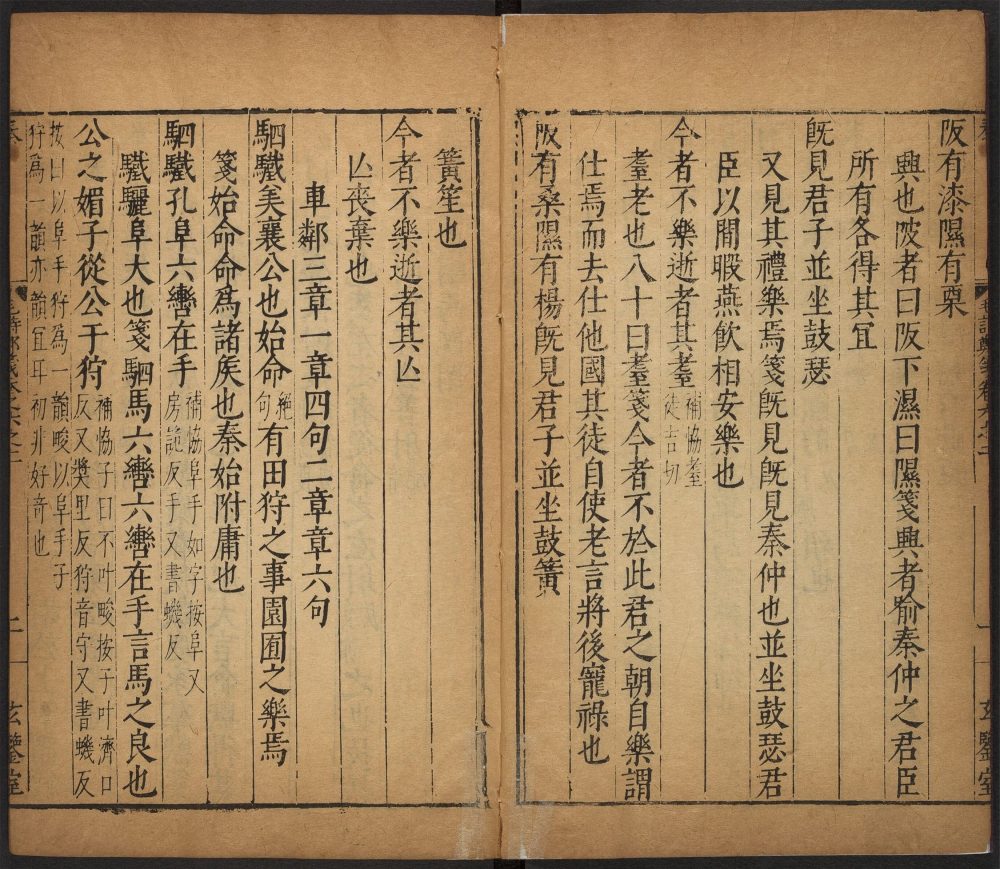 阪有漆隰有栗
興也陂者曰阪下濕曰隰箋興者喻秦仲之君臣
所有各得其冝
旣見君子並坐鼓瑟
又見其禮樂焉箋旣見旣見秦仲也並坐鼓瑟君
臣以閒暇燕飲相安樂也
今者不樂逝者其耋補協耋徒吉切
耋老也八十曰耋箋今者不於此君之朝自樂謂
仕焉而去仕他國其徒自使老言將後寵祿也
阪有桑隰有楊旣見君子並坐鼓簧
簧笙也
今者不樂逝者其亾
亾喪棄也
車鄰三章一章四句二章章六句
駟驖美襄公也始命絕句有田狩之事園囿之樂焉
箋始命命爲諸矦也秦始附庸也
駟驖孔阜六轡在手補協阜手如字按阜又房詭反手又書蟣反
驖驪阜大也箋駟馬六轡六轡在手言馬之良也
公之媚子從公于狩補協子曰不叶畯按子叶濟口反又獎里反狩音守又書蟣反
按曰以阜手狩爲一韻畯以阜手子
狩爲一韻亦韻冝耳初非好奇也
二
玄鑒室
毛詩鄭箋卷六之二
一
玄鑒室